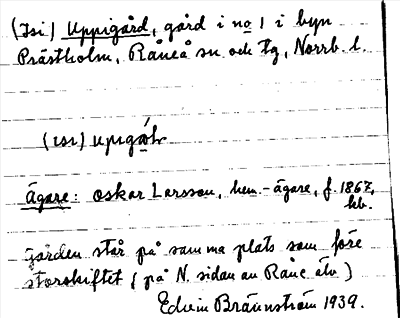 (Isi) Uppigård, gård i no 1 i byn
Prästholm, Råneå sn och tg, Norrb. l.
(ısı) upıgɑ́ɽ
Ägare: Oskar Larsson, hem.-ägare, f. 1867,
hb.
Gården står på samma plats som före
storskiftet (på N. sidan av Råne älv.)
Edvin Brännström 1939.